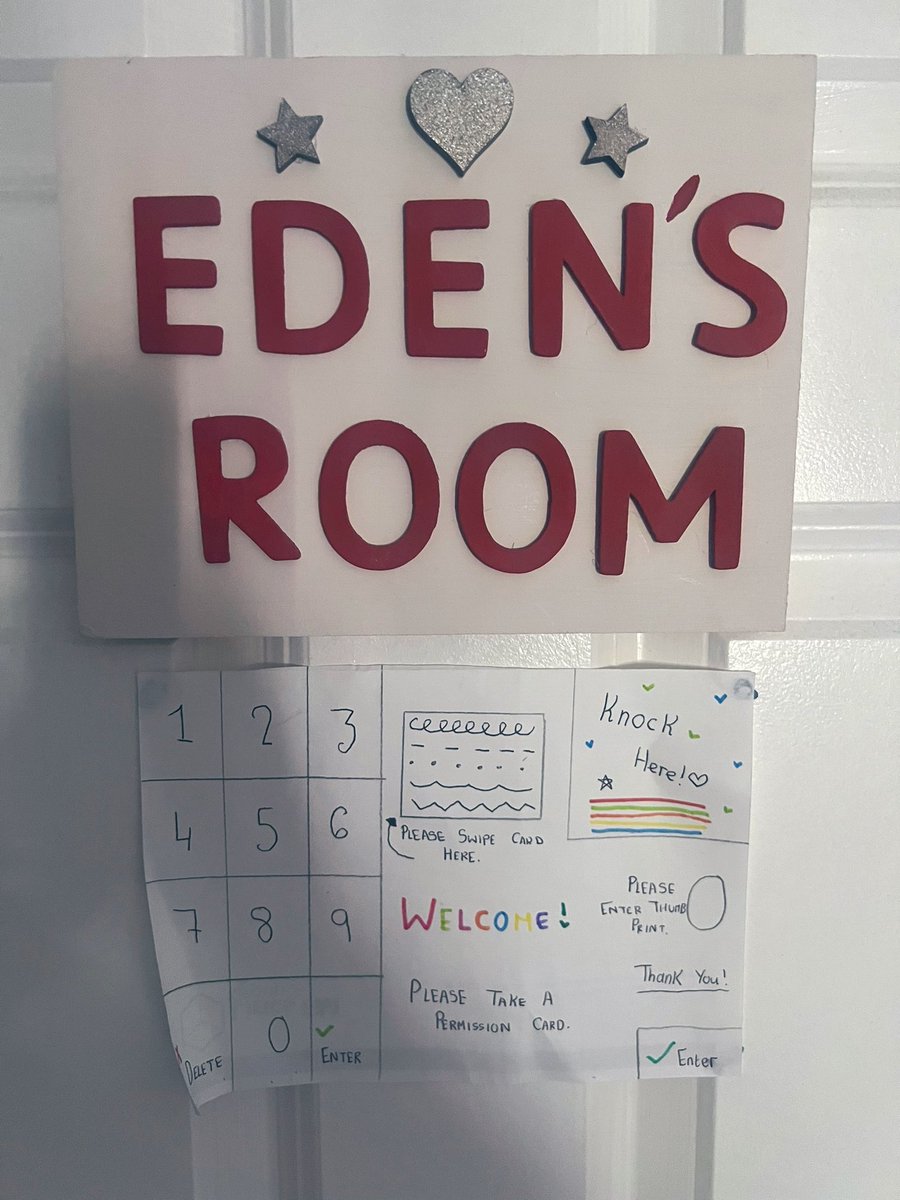 EDEN'S
ROOM
1 2 3
4 5 6
7 8 9
DELETE 0 ENTER
PLEASE SWIPE CARD
HERE.
WELCOME!
PLEASE TAKE A
PERMISSION CARD.
Knock
Here!
PLEASE
ENTER THUMB
PRINT.
Thank You!
Enter